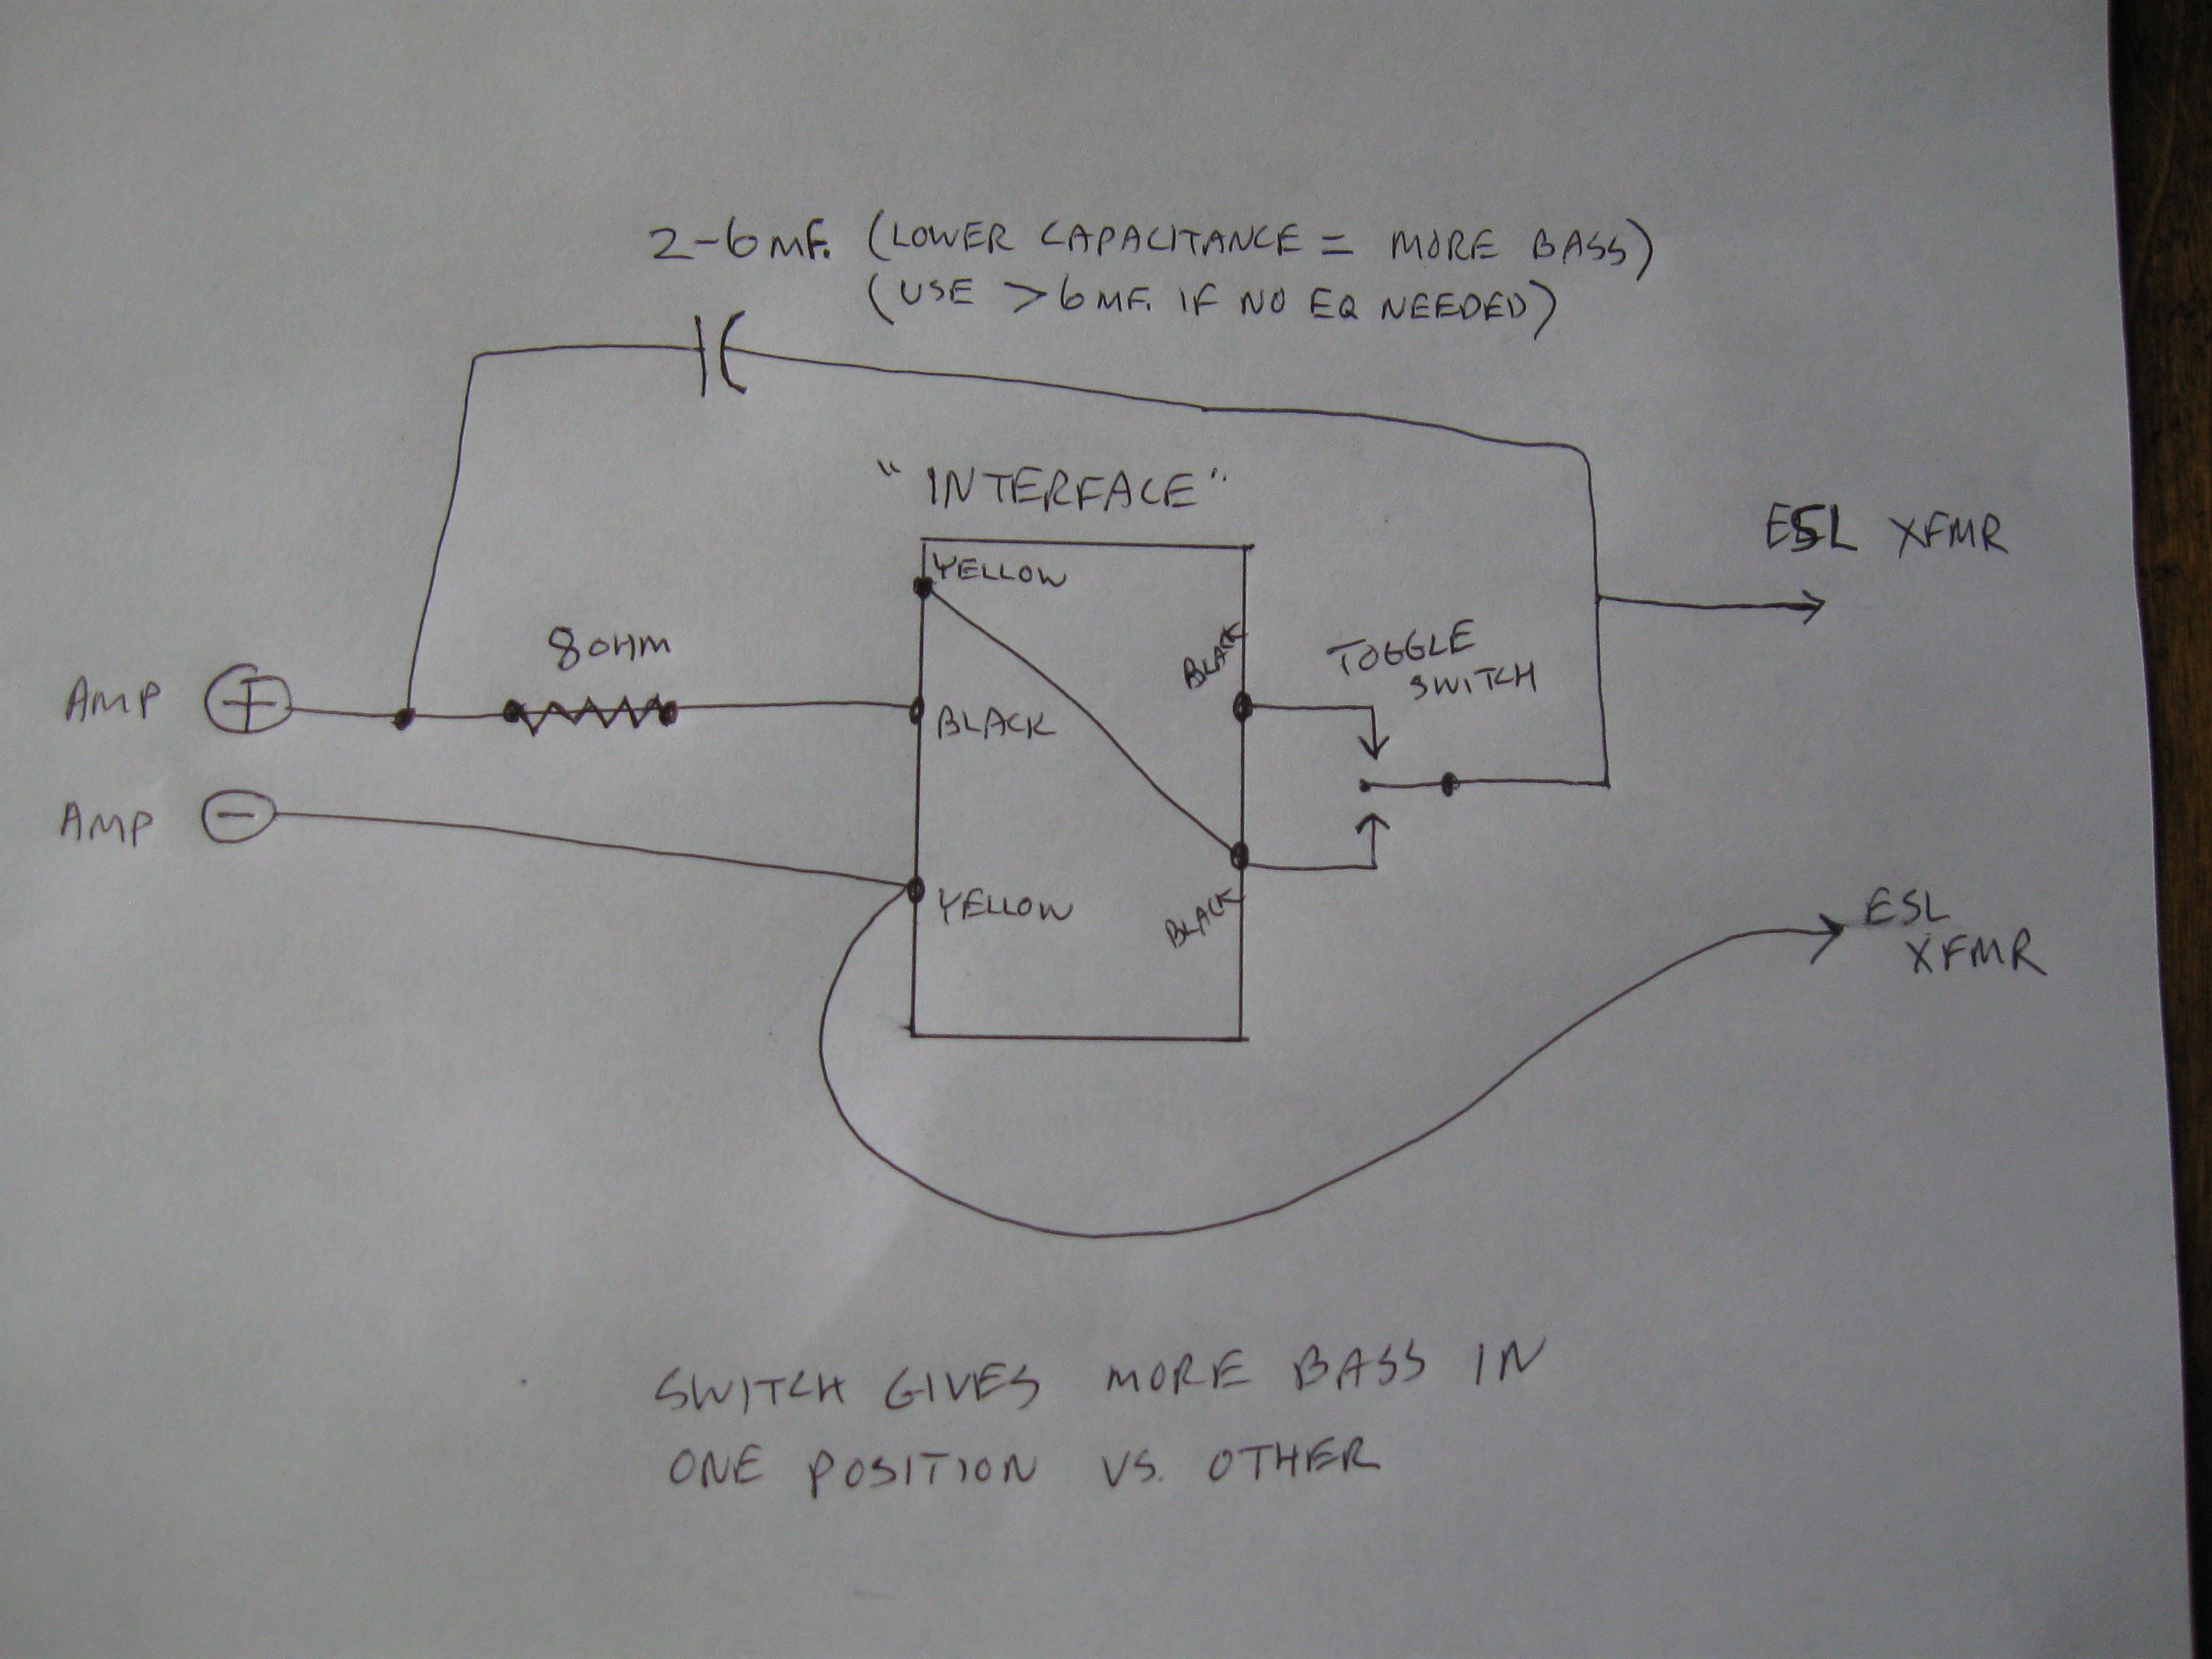 2-6 MF. (LOWER CAPACITANCE = MORE BASS)
(USE >6 MF. IF NO EQ NEEDED)
"INTERFACE"
ESL XFMR
YELLOW
BLACK
8 OHM
TOGGLE
SWITCH
AMP +
BLACK
AMP -
YELLOW
BLACK
ESL
XFMR
SWITCH GIVES MORE BASS IN
ONE POSITION VS. OTHER